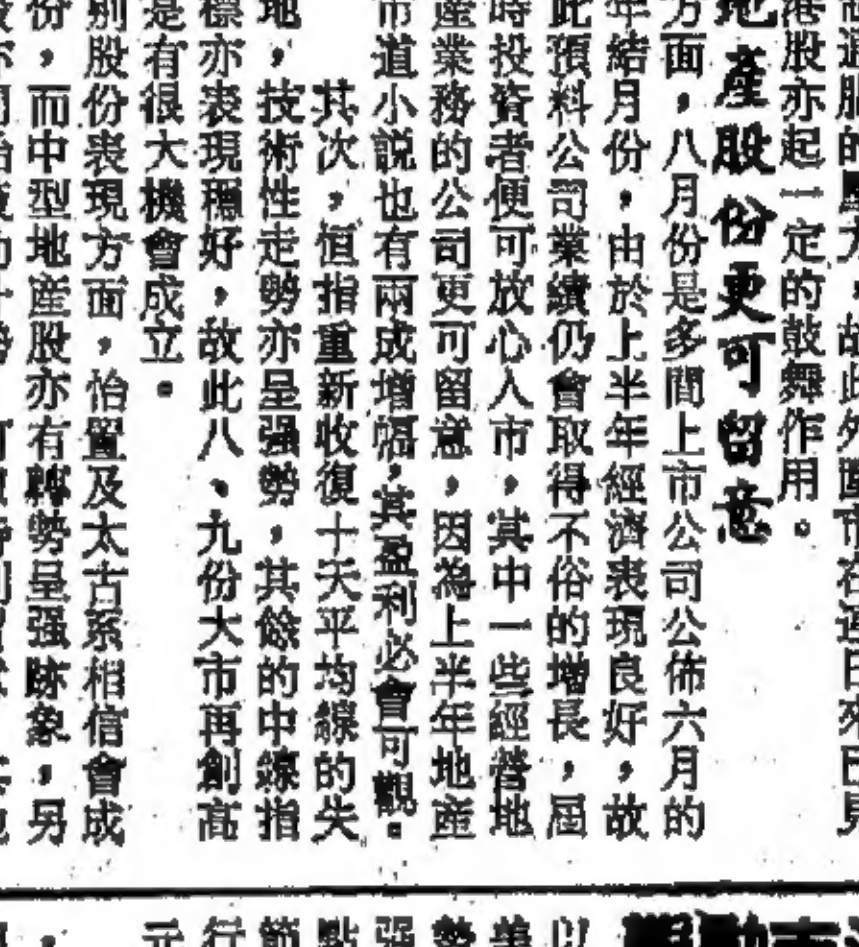 港股亦起一定的鼓舞作用。
地產股份更可留意
方面，八月份是多間上市公司公佈六月的
年結月份，由於上半年經濟表現良好，故
此預料公司業績仍會取得不俗的增長，屆
時投資者便可放心入市，其中一些經營地
產業務的公司更可留意，因為上半年地產
市道小說也有兩成增幅，其盈利必會可觀。
其次，恒指重新收復十天平均線的失
地，技術性走勢亦呈强勢，其餘的中線指
標亦表現穩好，故此八、九份大市再創高
是有很大機會成立。
別股份表現方面，怡置及太古系相信會成
份，而中型地產股亦有轉勢呈强跡象，另